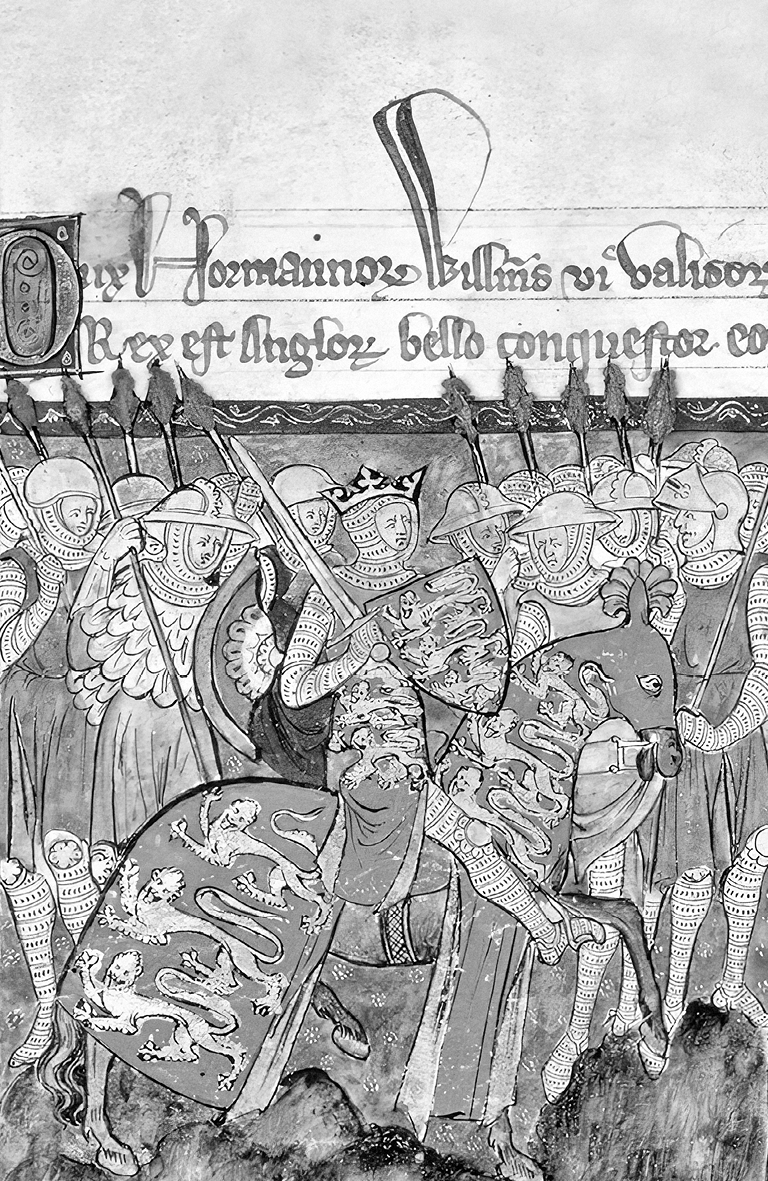 Dux Normannor Willms vi validor
Rex est Anglor bello conquestor eo